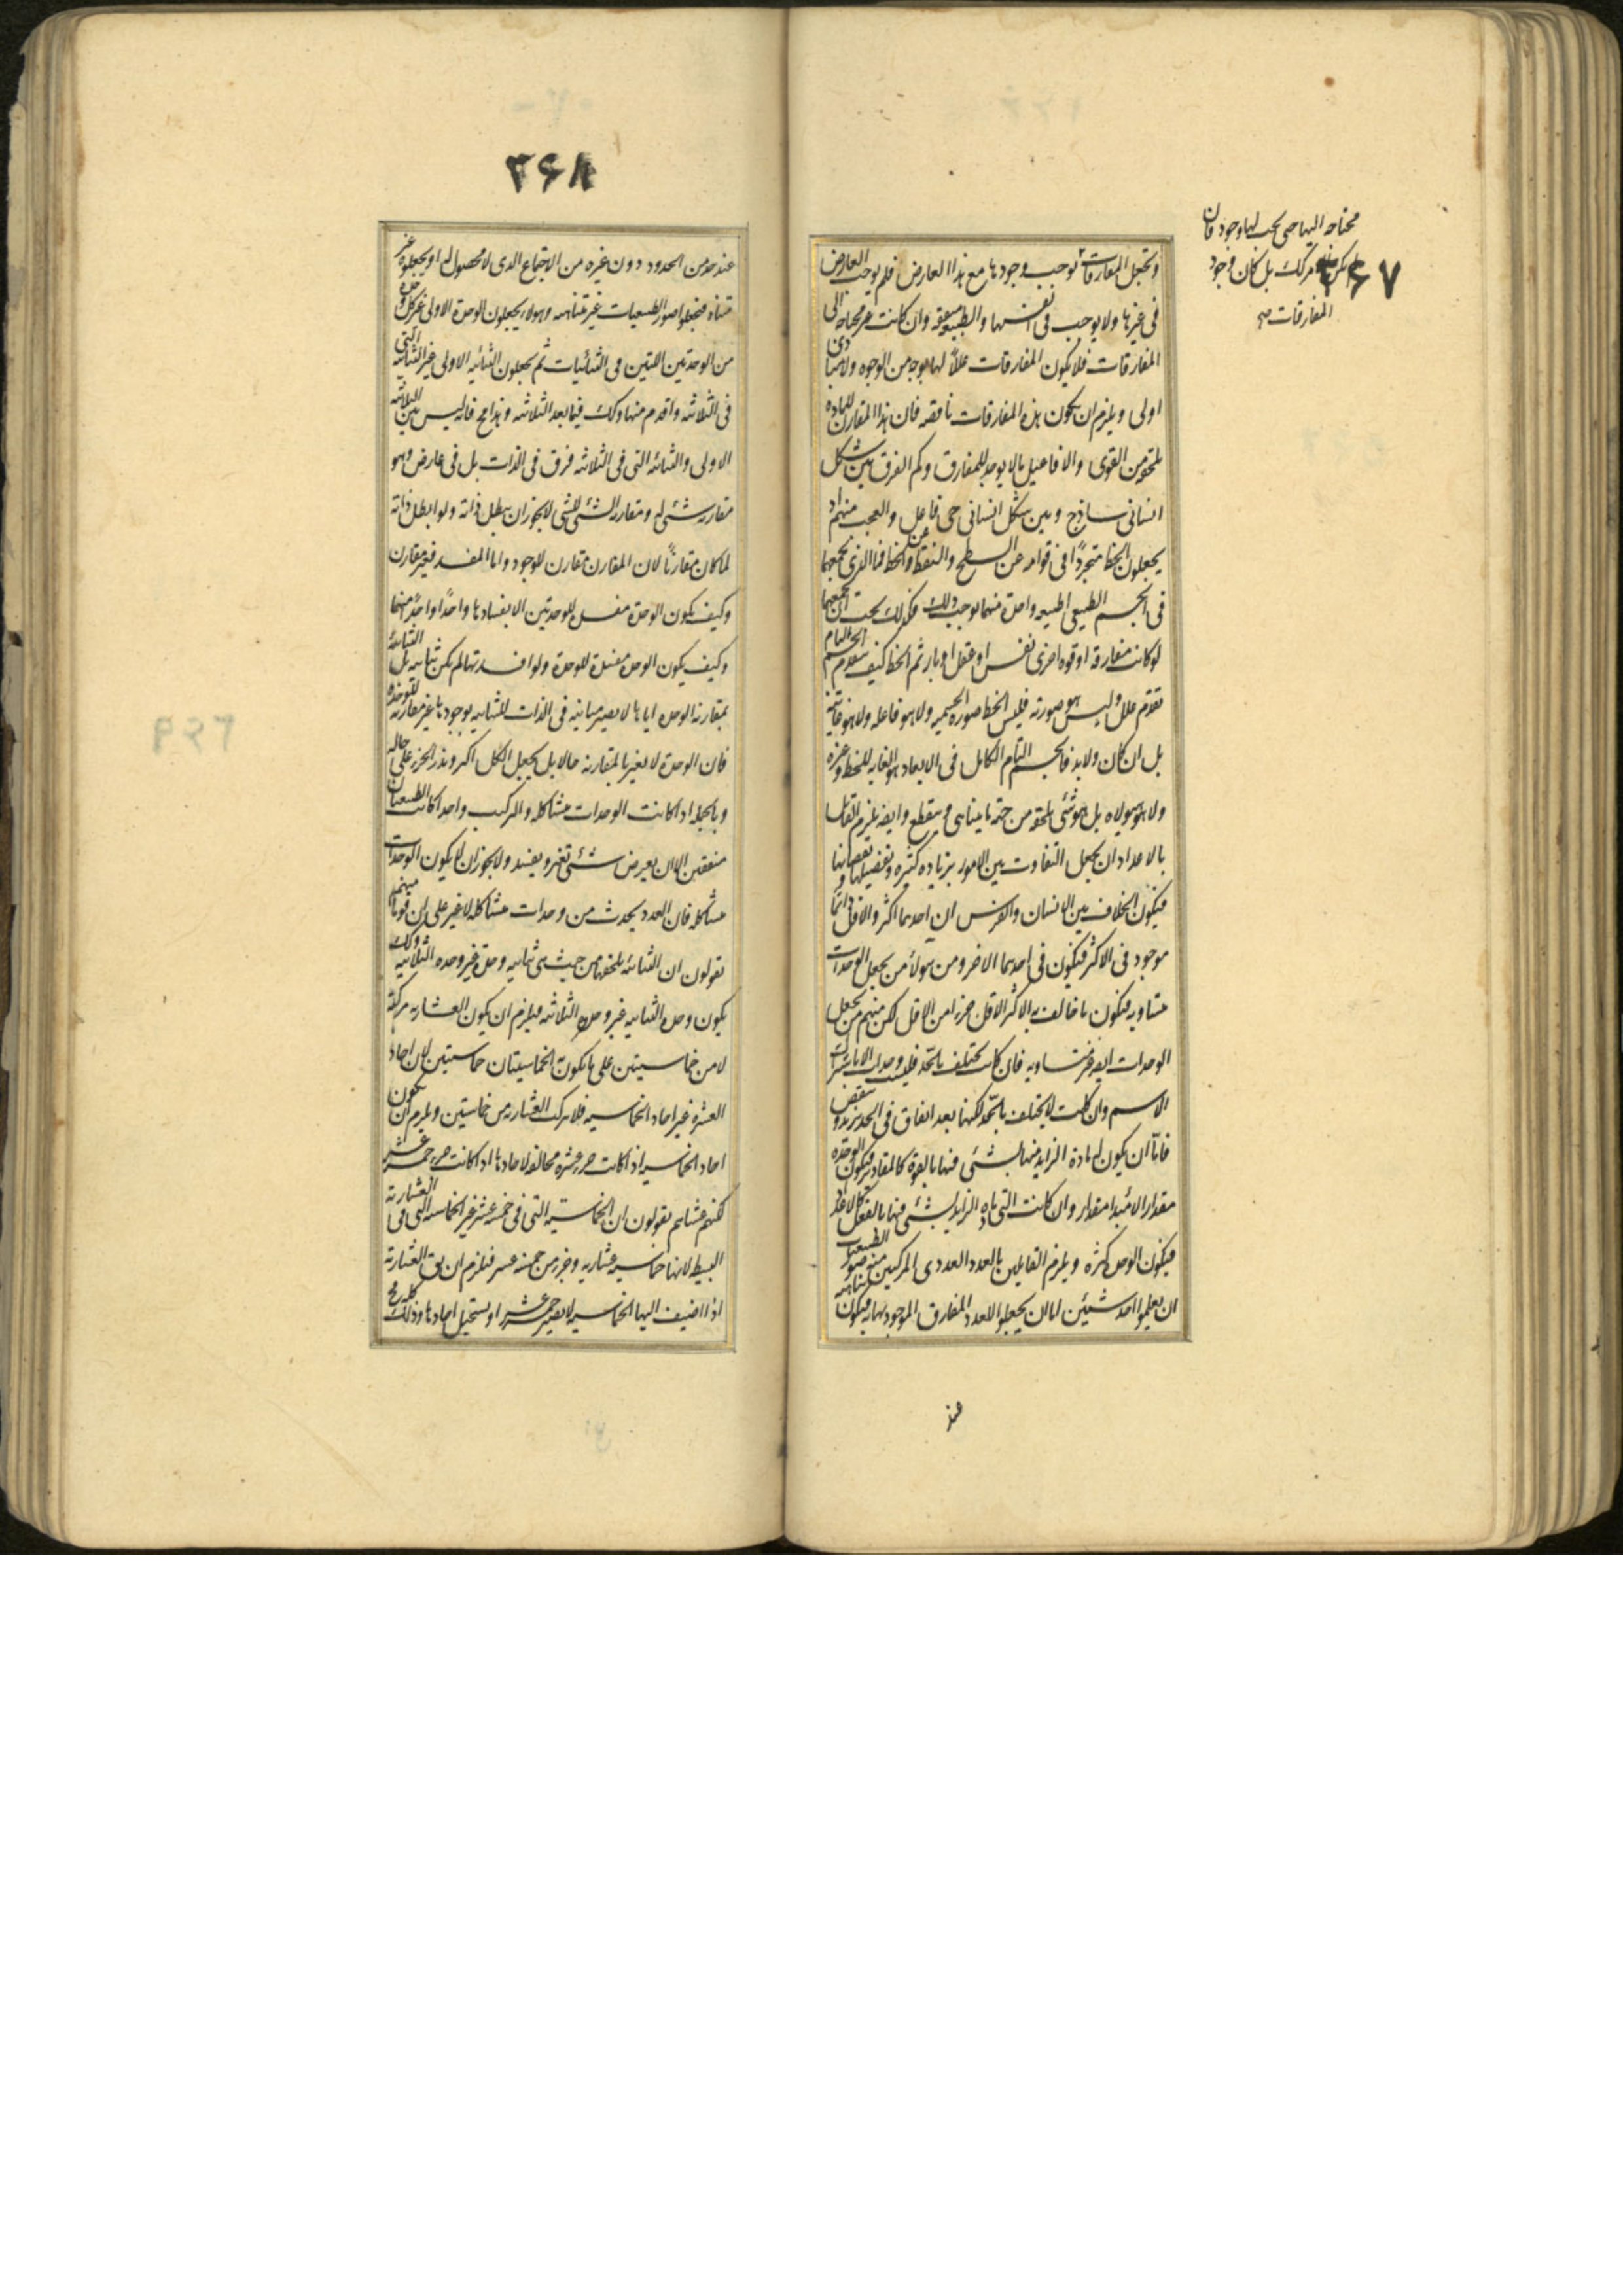 وتجعل المفارقات توجب وجودها مع هذا العارض فلم يوجب العارض
فى غيرها ولا يوجب فى انفسها والطبيعة متفقة وان كانت غير محتاجة الى
المفارقات فلا يكون المفارقات عللا لها بوجه من الوجوه ولا مبادى
اولى ويلزم ان يكون هذه المفارقات ناقصة فان هذا المقارن للمادة
يلحقه من القوى والافاعيل ما لا يوجد للمفارق وكم الفرق بين شكل
انسانى ساذج وبين شكل انسانى حى فاعل والعجب منهم اذ
يجعلون الخط متجردا فى قوامه عن السطح والنقطة عن الخط فما الذى يجمعها
فى الجسم الطبيعى اطبيعة واحدة منهما يوجب ذلك فكذلك يجب ان يجمعها
لو كانت مفارقة او قوة اخرى نفس او عقل او بار ثم الخط كيف يتقدم الجسم التام
تقدم علل وليس هو صورته فليس الخط صورة الجسمية ولا هو فاعله ولا هو غايته
بل ان كان ولا بد فالجسم التام الكامل فى الابعاد هو الغاية للخط وغيره
ولا هو هيولاه بل هو شئ يلحقه من جهة ما يتناهى وينقطع وايضه يلزم القائل
بالاعداد ان يجعل التفاوت بين الامور بزيادة كثرة ونقصانها
فيكون الخلاف بين الانسان والفرس ان احدهما اكثر والاقل دائما
موجود فى الاكثر فيكون فى احدهما الاخر ومن هولاء من يجعل الوحدات
متساوية فيكون ما خالف به الاكثر الاقل جزءا من الاقل لكن منهم من يجعل
الوحدات ايضه غير متساوية فان كانت تختلف بالحد فليست وحدات الا باشتراك
الاسم وان كانت لا تختلف بالحد لكنها بعد اتفاق فى الحد يزيد وينقص
فاما ان يكون له مادة الزايد منها بشئ فيها بالقوة كالمقادير فيكون الوحدة
مقدارا لا مبدا مقدار وان كانت التى زيادة الزايد بشئ فيها بالفعل كالاعداد
فيكون الوحدة كثرة ويلزم القايلين بالعدد العددى المركبين منه صور الطبيعيات
ان يعملوا احد شيئين اما ان يجعلوا للعدد المفارق الموجود نهاية فيكون
محتاجة اليها حتى يجب لها وجود فان
لم يكن كذلك بل كان وجود
المفارقات صح
٣۶٧
عند
٣۶٨
عند حد من الحدود دون غيره من الاختراع الذى لا محصول له او يجعلوه غير
متناه فيجعلوا صور الطبيعيات غير متناهية وهولاء يجعلون الوحدة الاولى غير كل وحدة
من الوحدتين اللتين فى الثنائيات ثم يجعلون الثنائية الاولى غير الثنائية التى
فى الثلاثية واقدم منها وكذلك فيما بعد الثلاثية وهذا مح فانه ليس بين الثنائية
الاولى والثنائية التى فى الثلاثية فرق فى الذات بل فى عارض وهو
مقارنة شئ له ومقارنة الشئ للشئ لا يجوز ان يبطل ذاته ولو ابطل ذاته
لما كان مقارنا لان المقارن مقارن للموجود واما المفسد فغير مقارن
وكيف يكون الوحدة مفسدة للوحدتين الا بافسادها واحدا واحدا منهما
وكيف يكون الوحدة مفسدة للوحدة ولو افسدتها لم يكن ثنائية بل الثنائية
بمقارنة الوحدة اياها لا يصير مباينة فى الذات للثنائية بوجودها غير مقارنة للوحدة
فان الوحدة لا يغير بالمقارنة حالا بل يجعل الكل اكثر ويذر الجزء على حاله
وبالجملة اذا كانت الوحدات متشاكلة والتركيب واحدا كانت الطبيعتان
متفقتين الا ان يعرض شئ تغير ويفسد ولا يجوز ان لا يكون الوحدات
متشاكلة فان العدد يحدث من وحدات متشاكلة لا غير على ان قوما منهم
يقولون ان الثنائية يلحقها من حيث هى ثنائية وحدة غير وحدة الثلاثية وكذلك
يكون وحدة الثنائية غير وحدة الثلاثية فيلزم ان يكون العشارية مركبة
لا من خماسيتين على ما يكون الخماسيتان خماسيتين لان احاد
العشرة غير احاد الخماسية فلا تركب العشارية من خماسيتين ويلزم ان يكون
احاد الخماسية اذا كانت جزء عشرة مخالفة لاحادها اذا كانت جزء خمسة عشر
لكنهم عساهم يقولون ان الخماسية التى فى خمسة عشر غير الخماسية التى فى العشارية
البسيطة لانها خماسية عشارية وجزء من خمسة عشر فيلزم ان يق العشارية
اذا اضيف اليها الخماسية لا يصير خمسة عشر او يستحيل احادها وذلك كله مح